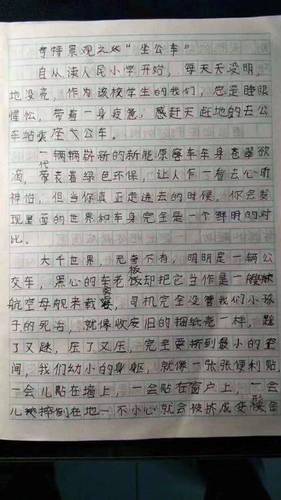 奇特景观之"坐公车"
自从读人民小学开始，每天天没明，
地没亮，作为该校学生的我们，总是睡眼
惺忪，带着一身疲惫，感赶天赶地的去公
车站坐公车。
一辆辆崭新的新能源客车车身苍翠欲
滴，代表着绿色环保，让人乍一看去心旷
神怡，但当你真正走进去的时候，你会发
现里面的世界和车身完全是一个鲜明的对
比。
大千世界，无奇不有，明明是一辆公
交车，黑心的车老板却把它当作是一艘
航空母舰来载客，司机完全没管我们小孩
子的死活，就像收废旧的捆纸壳一样，
了又，压了又压，完全要挤到最小的空
间，我们幼小的身躯，就像一张张便利贴
一会儿贴在墙上，一会贴在窗户上，一会
儿摔倒在地一不小心就会被挤成变